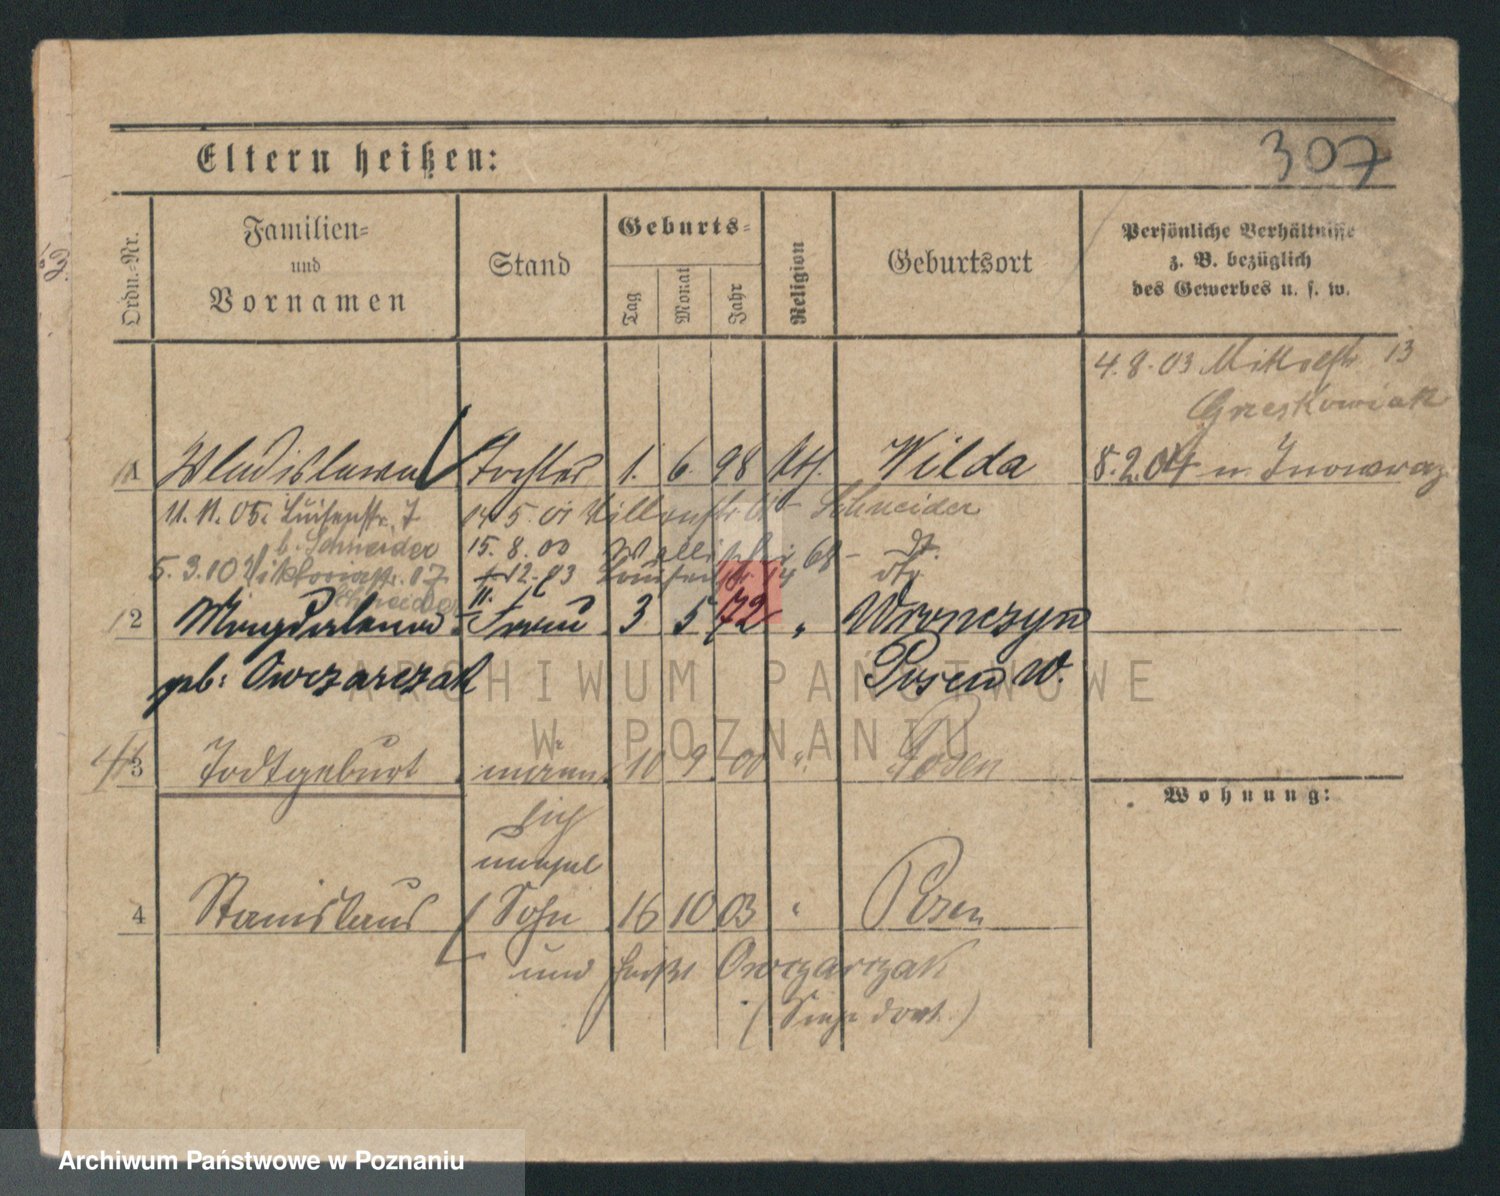 307
Eltern heißen:
Ordn.-Nr.
Familien-
und
Vornamen
Stand
Geburts-
Tag
Monat
Jahr
Religion
Geburtsort
Persönliche Verhältnisse
z. B. bezüglich
des Gewerbes u. s. w.
4.8.03 13
Grzeskowiak
1 Wladislawa Tochter 1. 6. 98 kth. Wilda
8.2.04 n. Inowraz
11.11.05. Luisenstr. 7 14 5. 01 Schneider
b. Schneider 15. 8. 00 Wallischei 68
5. 3. 10 Viktoriastr. 17 12. 03 Luisenstr. 14
Schneider
2 Magdalena Frau 3 5 72 " Wronczyn
geb: Owczarczak Posen W.
3 Todtgeburt männ- 10 9 00 " Posen
lich
Wohnung:
unehel
4 Stanislaus Sohn 16 10 03 " Posen
und heißt Owczarczak
(Siehe dort.)
ARCHIWUM PAŃSTWOWE
W POZNANIU
Archiwum Państwowe w Poznaniu